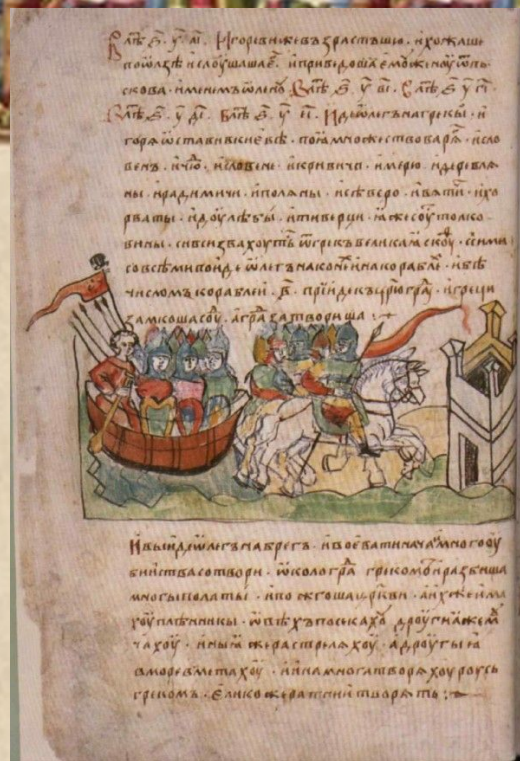 В лѣⷮ ҂ѕ҃ у҃ аı҃ Игоревижевъзрастъшю · ихожаше
поѡлзѣ ислоушашаеⷢ · ıприведошаемоуженоуѿпь
скова · ıменемъѡленоу В лѣⷮ ҂ѕ҃ у҃ вı҃ В лѣⷮ ҂ѕ҃ у҃ гı҃
В лѣⷮ ҂ѕ҃ у҃ дı҃ В лѣⷮ ҂ѕ҃ у҃ еı҃ Идеѡлегънагрекы · и
горѧѡставивкиевѣ · поıамножествоварѧⷢ · исло
венъ · ичюⷣ · ısловене · икривичѣ · имерю · идеревлѧ
ны · ирадимичи · иполѧны · исѣверо · ивѧтичи · ихо
рваты · идоулѣбы · итиверци · ꙗжесоутьтолко
вины · сивсизвахоутьⷭ ѿгрекъвеликаꙗскоуⷴ · ссими
совсѣмипоидеѡлегънаконеⷯинакораблиⷯ · ибѣ
числомъкораблеи · ҂в҃ · прıидекъцрюграⷣ · игреци
замкошасоуⷣ · аграⷣзатвориша :·
Ивыидеѡлегънабрегъ · ивоеватинача · имногооу
биıствасотвори · ѡколограⷣ грекомъ · иразбиша
многыполаты · ипожгошацркви · аıхжеима
хоуплѣнникы · ѡвѣхъпосѣкахоⷴ дроугиꙗжемⷱ
чахоу · иныꙗжерастрелѧхоу · адроугыꙗ
вмореметахоу · иинамноготворѧхоуроусь
грекомъ · еликожератниитворѧть :·